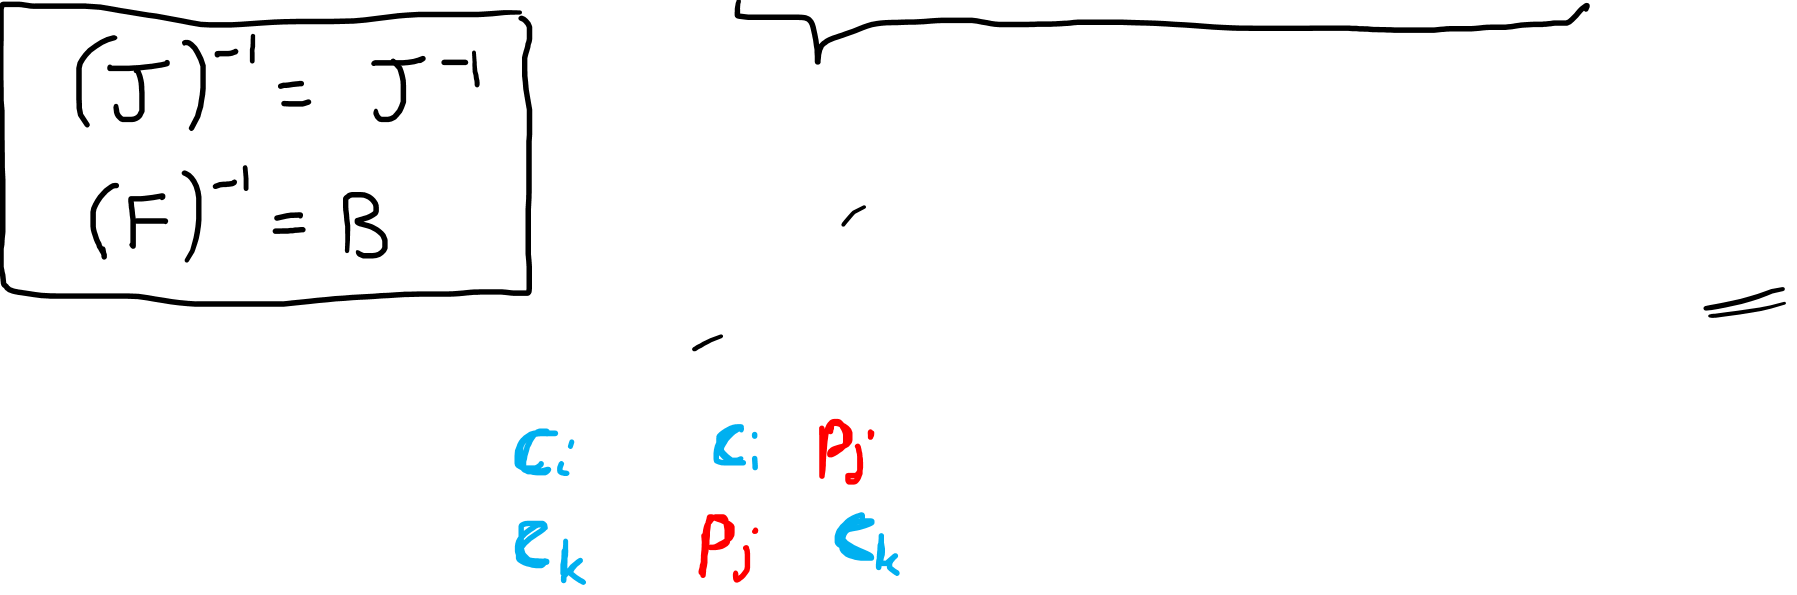 (J)⁻¹ = J⁻¹
(F)⁻¹ = B
Ci Ci Pj
Ck Pj Ck